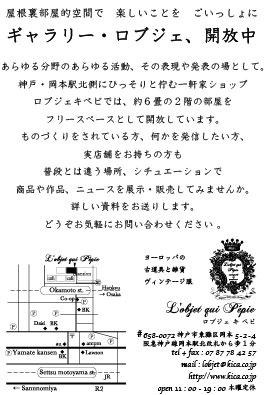 屋根裏部屋的空間で　楽しいことを　ごいっしょに
ギャラリー・ロブジェ、開放中
あらゆる分野のあらゆる活動、その表現や発表の場として。
神戸・岡本駅北側にひっそりと佇む一軒家ショップ
ロブジェキペピでは、約６畳の２階の部屋を
フリースペースとして開放しています。
ものづくりをされている方、何かを発信したい方、
実店舗をお持ちの方も
普段とは違う場所、シチュエーションで
商品や作品、ニュースを展示・販売してみませんか。
詳しい資料をお送りします。
どうぞお気軽にお問い合わせください。
L'objet qui Pépie
Okamoto st.
Hankyu
→ Osaka
Co-op
BK
P
Daki
BK
P
P
P
ampm
Yamate kansen
BK
Lawson
Setsu motoyama st.
JR
← Sannnomiya
R2
ヨーロッパの
古道具と雑貨
ヴィンテージ服
L'objet qui Pépie
ロブジェ キペピ
〒658-0072 神戸市東灘区岡本 5-2-4
阪急神戸線岡本駅北改札から歩１分
tel + fax : 07 87 78 42 57
mail : lobjet@kica.co.jp
http://www.kica.co.jp
open 11 : 00 - 19 : 00 木曜定休